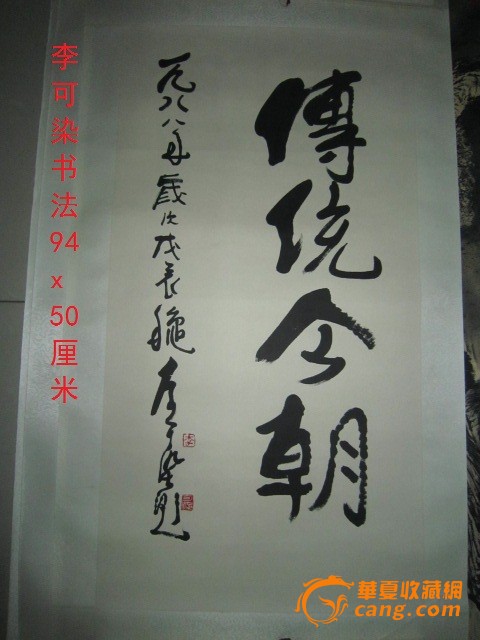 傳統今朝
一九八八年歲次戊辰龝李可染題
李可染书法94x50厘米
華夏收藏網
cang.com